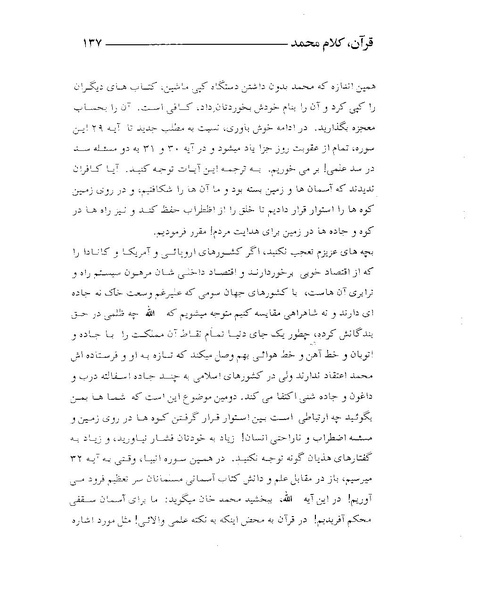 قرآن، کلام محمد ۱۳۷
همین اندازه که محمد بدون داشتن دستگاه کپی ماشین، کتاب های دیگران
را کپی کرد و آن را بنام خودش بخوردتان داد، کافی است. آن را بحساب
معجزه بگذارید. در ادامه خوش باوری، نسبت به مطلب جدید تا آیه ۲۹ این
سوره، تمام از عقوبت روز جزا یاد میشود و در آیه ۳۰ و ۳۱ به دو مسئله صد
در صد علمی! بر می خوریم. به ترجمه این آیات توجه کنید. آیا کافران
ندیدند که آسمان ها و زمین بسته بود و ما آن ها را شکافتیم، و در روی زمین
کوه ها را استوار قرار دادیم تا خلق را از اظطراب حفظ کند و نیز راه ها در
کوه و جاده ها در زمین برای هدایت مردم! مقرر فرمودیم.
بچه های عزیزم تعجب نکنید، اگر کشورهای اروپائی و آمریکا و کانادا را
که از اقتصاد خوبی برخوردارند و اقتصاد داخلی شان مرهون سیستم راه و
ترابری آن هاست، با کشورهای جهان سومی که علیرغم وسعت خاک نه جاده
ای دارند و نه شاهراهی مقایسه کنیم متوجه میشویم که الله چه ظلمی در حق
بندگانش کرده، چطور یک جای دنیا تمام نقاط آن مملکت را با جاده و
اتوبان و خط آهن و خط هوائی بهم وصل میکند که تازه به او و فرستاده اش
محمد اعتقاد ندارند ولی در کشورهای اسلامی به چند جاده اسفالته درب و
داغون و جاده شنی اکتفا می کند. دومین موضوع این است که شما ها بمن
بگوئید چه ارتباطی است بین استوار قرار گرفتن کوه ها در روی زمین و
مسئله اضطراب و ناراحتی انسان! زیاد به خودتان فشار نیاورید، و زیاد به
گفتارهای هذیان گونه توجه نکنید. در همین سوره انبیا، وقتی به آیه ۳۲
میرسیم، باز در مقابل علم و دانش کتاب آسمانی مسلمانان سر تعظیم فرود می
آوریم! در این آیه الله، ببخشید محمد خان میگوید: ما برای آسمان سقفی
محکم آفریدیم! در قرآن به محض اینکه به نکته علمی والائی! مثل مورد اشاره